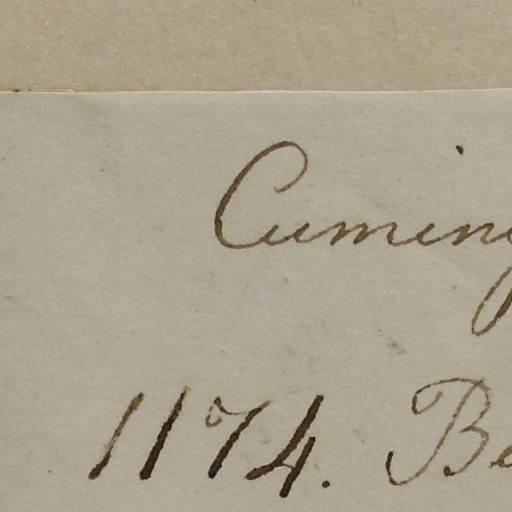 Cuming
1174. Be